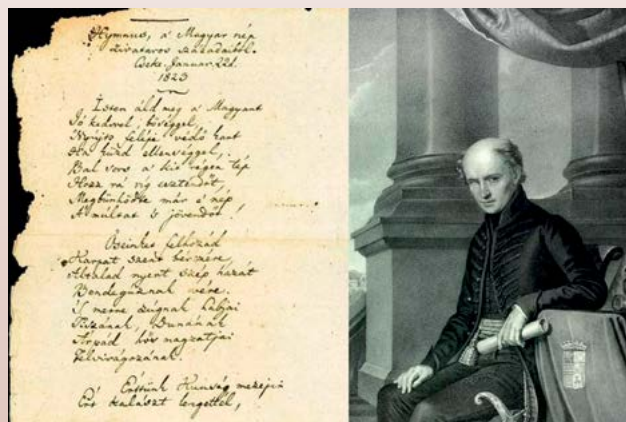 Hymnus, a Magyar nép
zivataros századaiból.
Cseke. Januar. 22d.
1823
Isten áld meg a Magyart
Jó kedvvel, bőséggel,
Nyújts feléje védő kart
Ha küzd ellenséggel,
Bal sors a kit régen tép
Hozz rá víg esztendőt,
Megbűnhödte már e nép
A' múltat 's jövendőt!
Őseinket felhozád
Kárpát szent bérczére,
Általad nyert szép hazát
Bendegúznak vére.
'S merre zúgnak habjai
Tiszának, Dunának
Árpád hős magzatjai
Felvirágozának.
Értünk Kunság mezején
Ért kalászt lengettél,